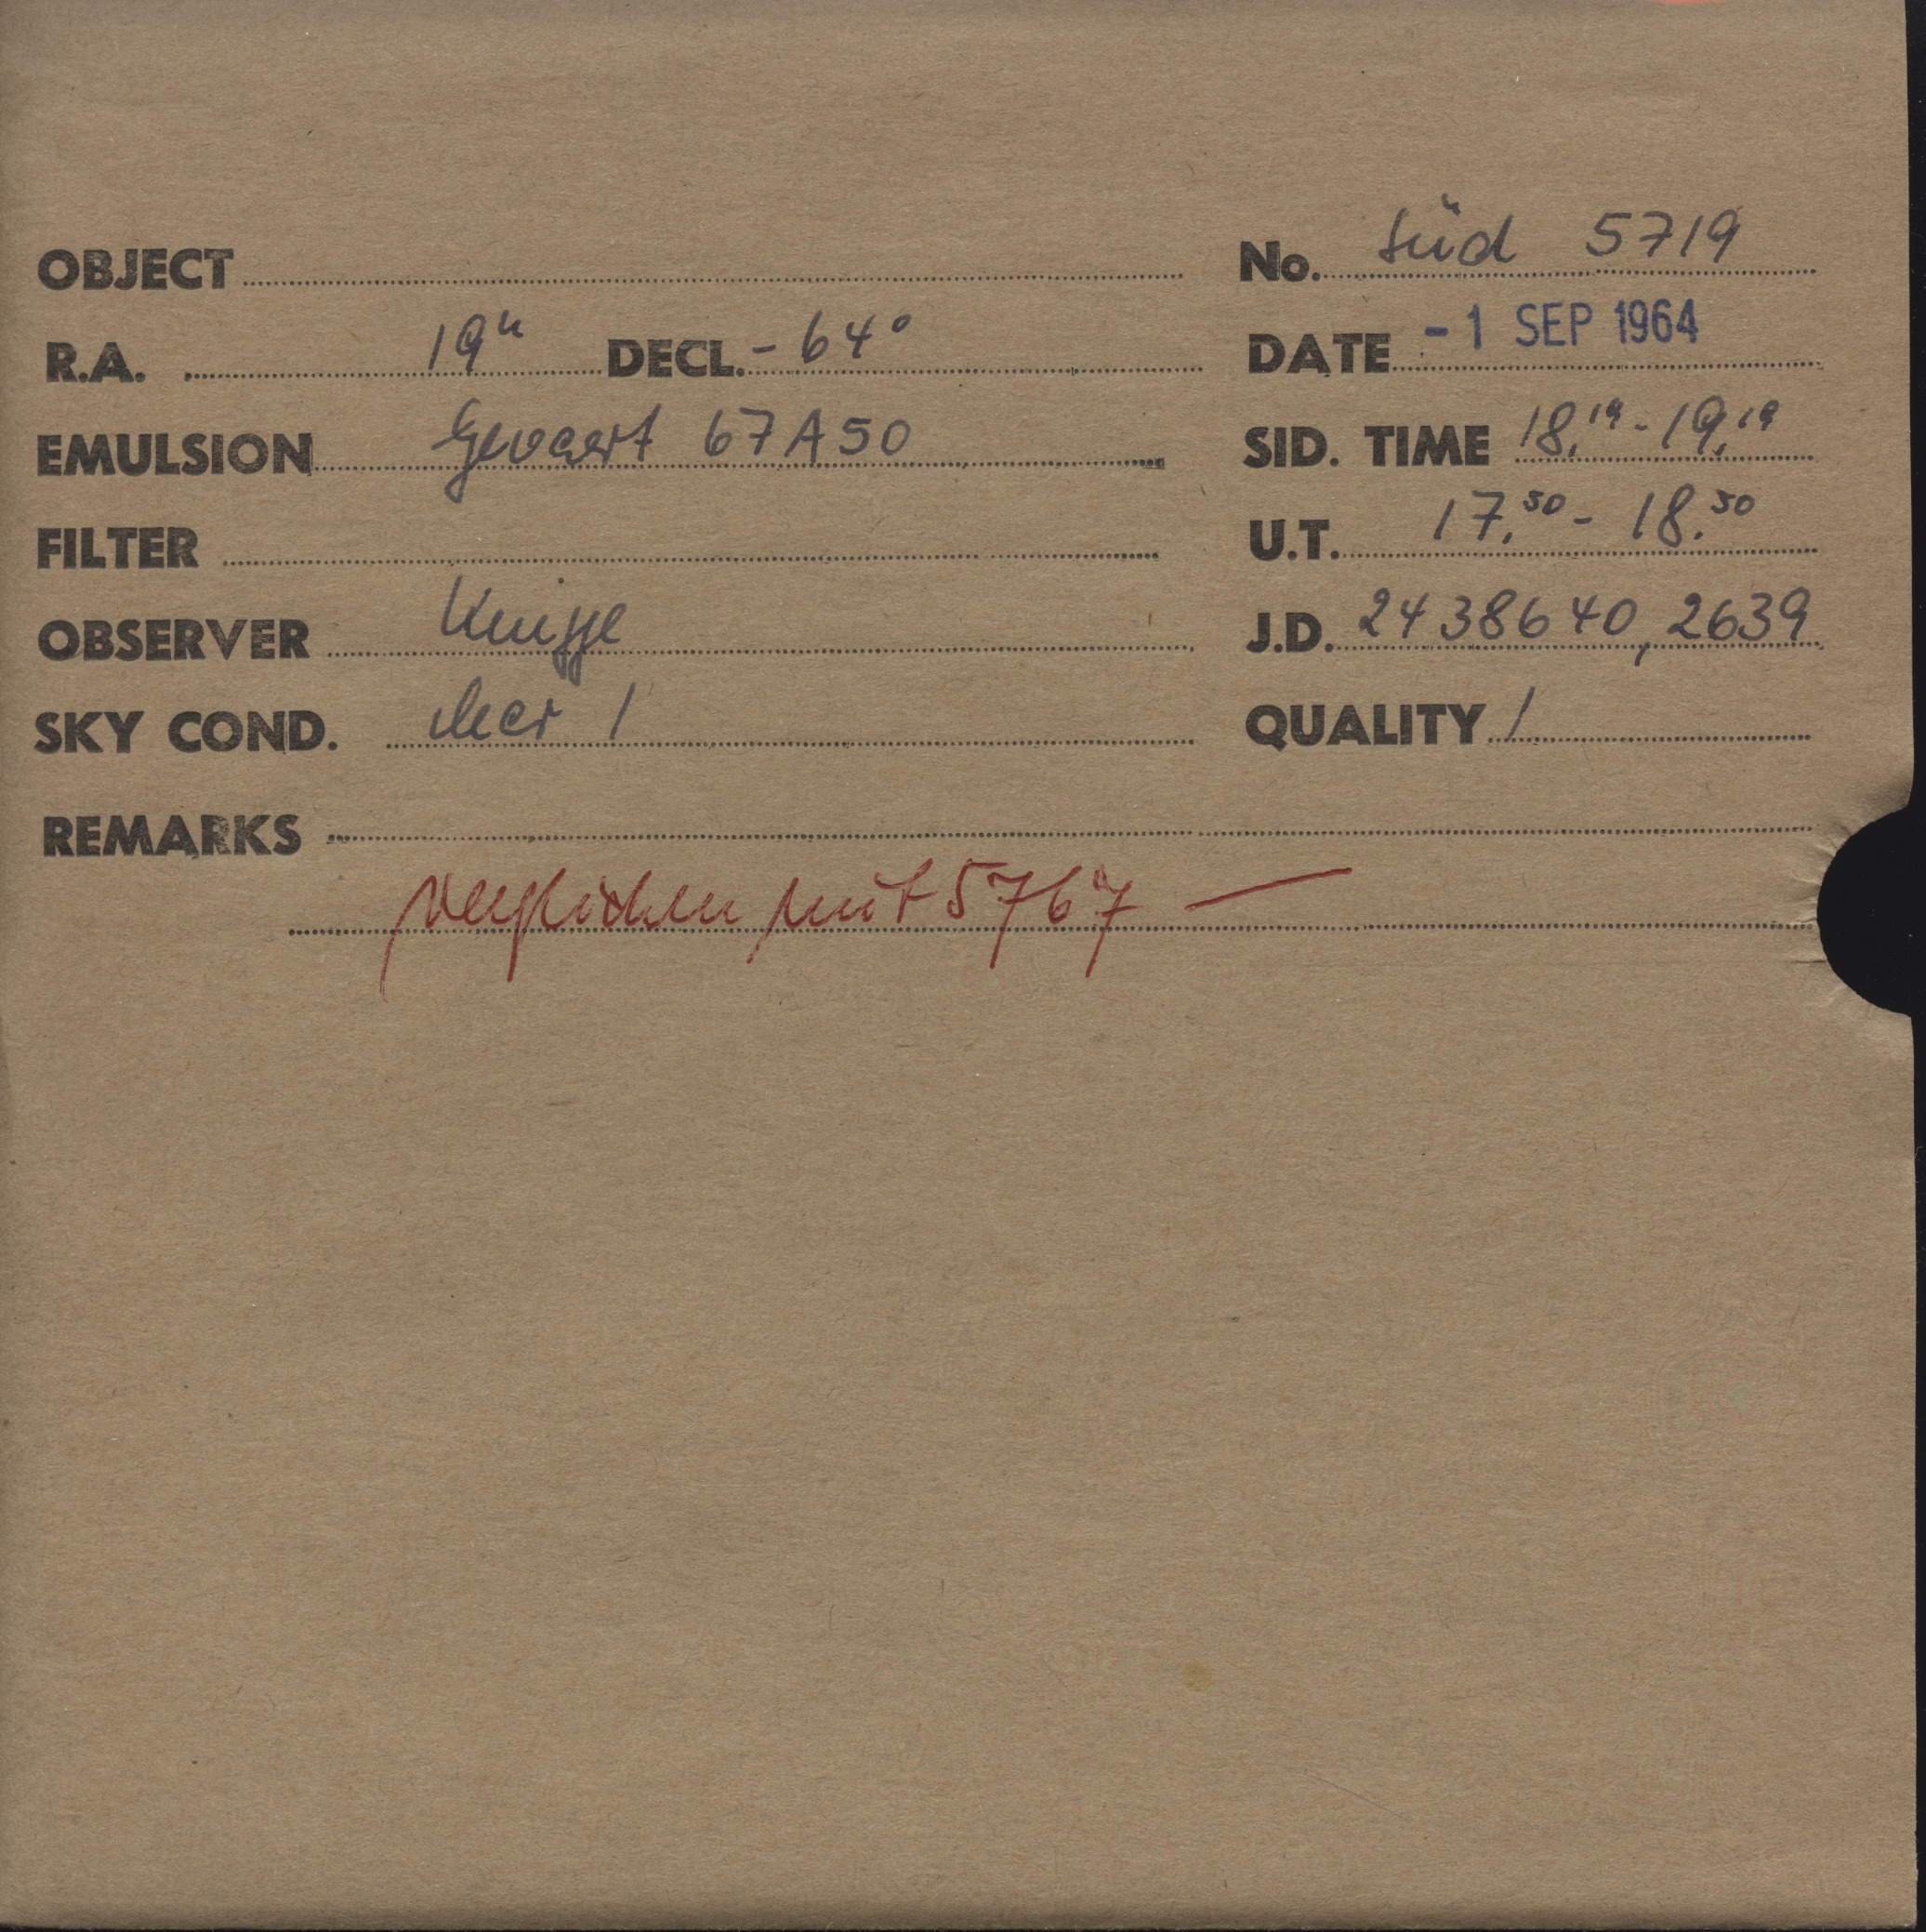 OBJECT No. Süd 5719
R.A. 19h DECL. - 64° DATE - 1 SEP 1964
EMULSION Gevaert 67A50 SID. TIME 18,19 - 19,19
FILTER U.T. 17.50 - 18.50
OBSERVER Knigge J.D. 2438640,2639
SKY COND. clear 1 QUALITY 1
REMARKS
verglichen mit 5767 —